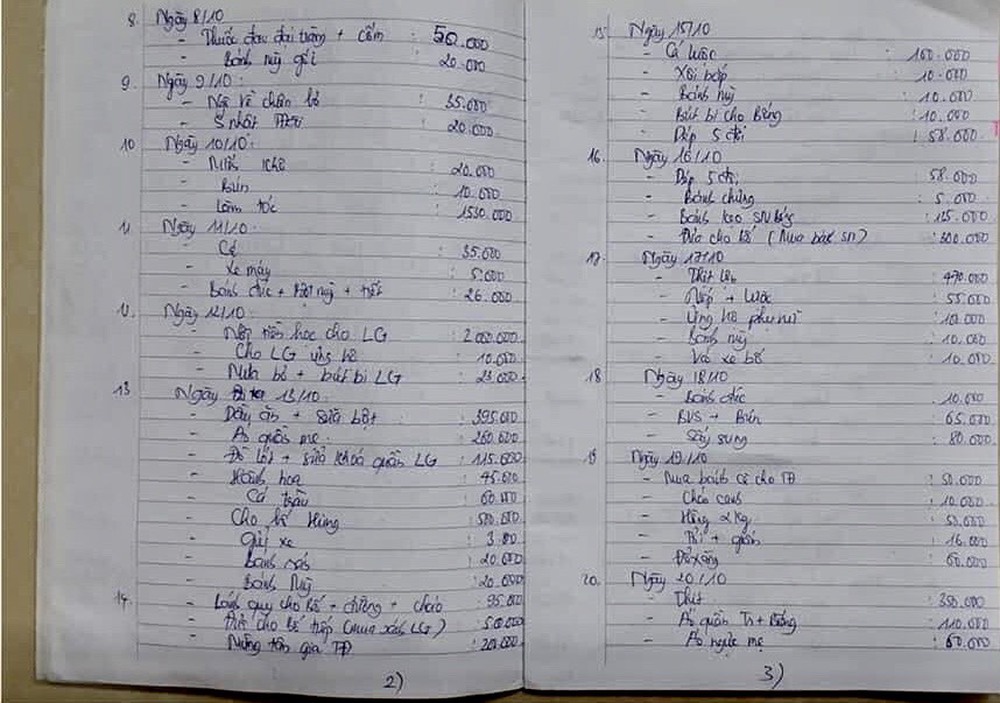 8. Ngày 8/10
- Thuốc đau đại tràng + cốm : 50.000
- Bánh mỳ gối 20.000
9. Ngày 9/10:
- Nộ vẽ chân bò : 35.000
- S nhật : 20.000
10 Ngày 10/10:
- Miến khô : 20.000
- Bún : 10.000
- Làm tóc : 1530.000
11 Ngày 11/10:
- Cá : 35.000
- Xe máy : 5.000
- Bánh đúc + bột mỳ + tiết : 26.000
12. Ngày 12/10:
- Nộp tiền học cho LG : 2.000.000
- Cho LG ủng hộ : 10.000
- Mua bỏ + bút bi LG : 23.000
13 Ngày 13/10:
- Dầu ăn + sữa bột : 395.000
- Áo quần mẹ : 260.000
- Đồ lót + sửa khoá quần LG : 115.000
- hoa : 45.000
- Cá trầu : 60.000
- Cho bố Hùng : 500.000
- Gửi xe : 3.000
- Bánh : 20.000
- Bánh Mỳ : 20.000
14. - bánh quy cho Bố + chường + cháo : 95.000
- Đưa cho bố tiếp (mua LG) : 500.000
- Mừng tân gia TĐ : 200.000
2)
15 Ngày 15/10
- Cá luộc : 160.000
- Xôi bắp : 10.000
- Bánh mỳ : 10.000
- Bút bi cho Bống : 10.000
- Dép 5 đôi : 58.000
16. Ngày 16/10
- Dép 5 đôi : 58.000
- Bánh chưng : 5.000
- Bánh kẹo SN Bống : 125.000
- Đưa cho bố (Mua bánh sn) : 300.000
17. Ngày 17/10
- Thịt lợn : 470.000
- Nếp + lược : 55.000
- Ủng hộ phụ nữ : 100.000
- Bánh mỳ : 10.000
- Vá xe bố : 10.000
18 Ngày 18/10
- Bánh đúc : 10.000
- BVS + Bún : 65.000
- Sấy sung : 80.000
19 Ngày 19/10
- Mua bánh cá cho TĐ : 50.000
- Cháo canh : 10.000
- Hồng 2kg : 50.000
- Tỏi + : 16.000
- Đổ xăng : 60.000
20. Ngày 20/10
- Thịt : 350.000
- Áo quần + Bống : 110.000
- Áo ngực mẹ : 60.000
3)